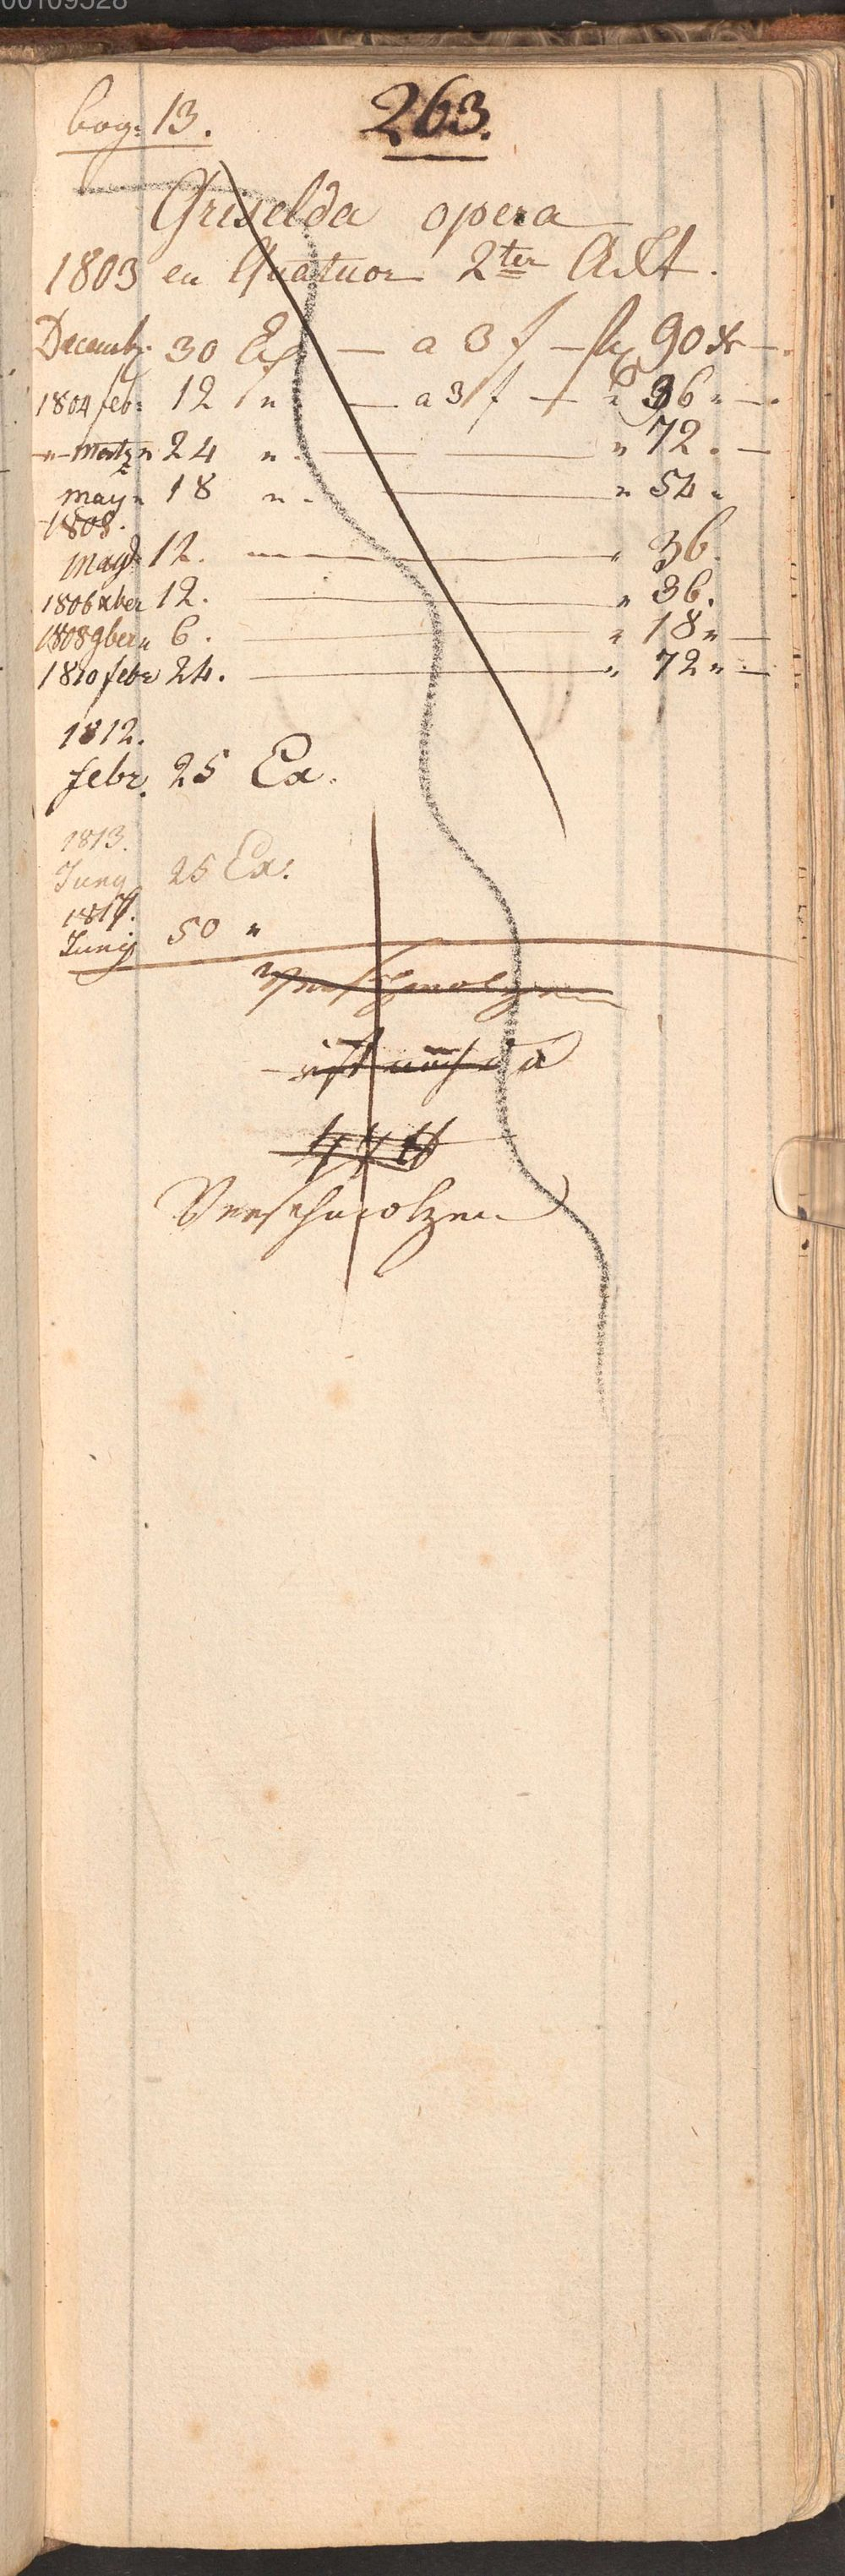 00109528
bog: 13.
263.
Griselda opera
1803 en Quatuor 2ter Ackt.
Decemb. 30 Ex — a 3 f — fl 90 xr —.
1804 feb: 12 " — a 3 f — " 36 " —.
— " — Martz " 24 " — — " 72 . —
May " 18 " — " 54 "
1808.
May 12. — " 36.
1806 xber 12. — " 36.
1808 9ber " 6. — " 18 " —
1810 febr 24. — " 72 " —
1812.
febr. 25 Ex.
1813.
Juny 25 Ex.
1817.
Juny 50 "
Verschmolzen
ist noch da
Verschmolzen